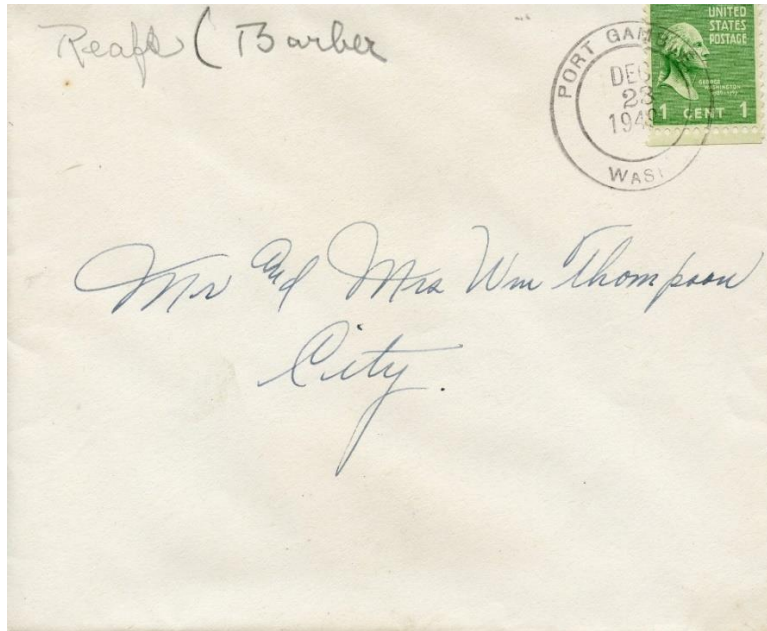 Reafs ( Barber
PORT GAMBLE
DEC
23
1949
WASH
UNITED
STATES
POSTAGE
GEORGE
WASHINGTON
1 CENT 1
Mr and Mrs Wm Thompson
City.